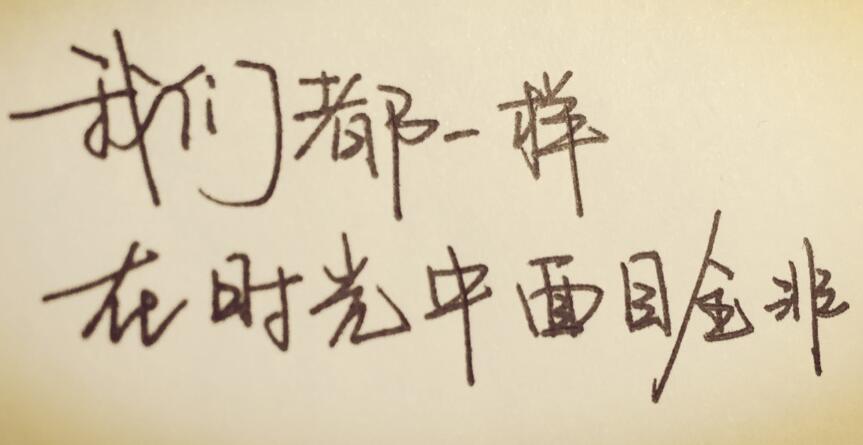 我们都一样
在时光中面目全非